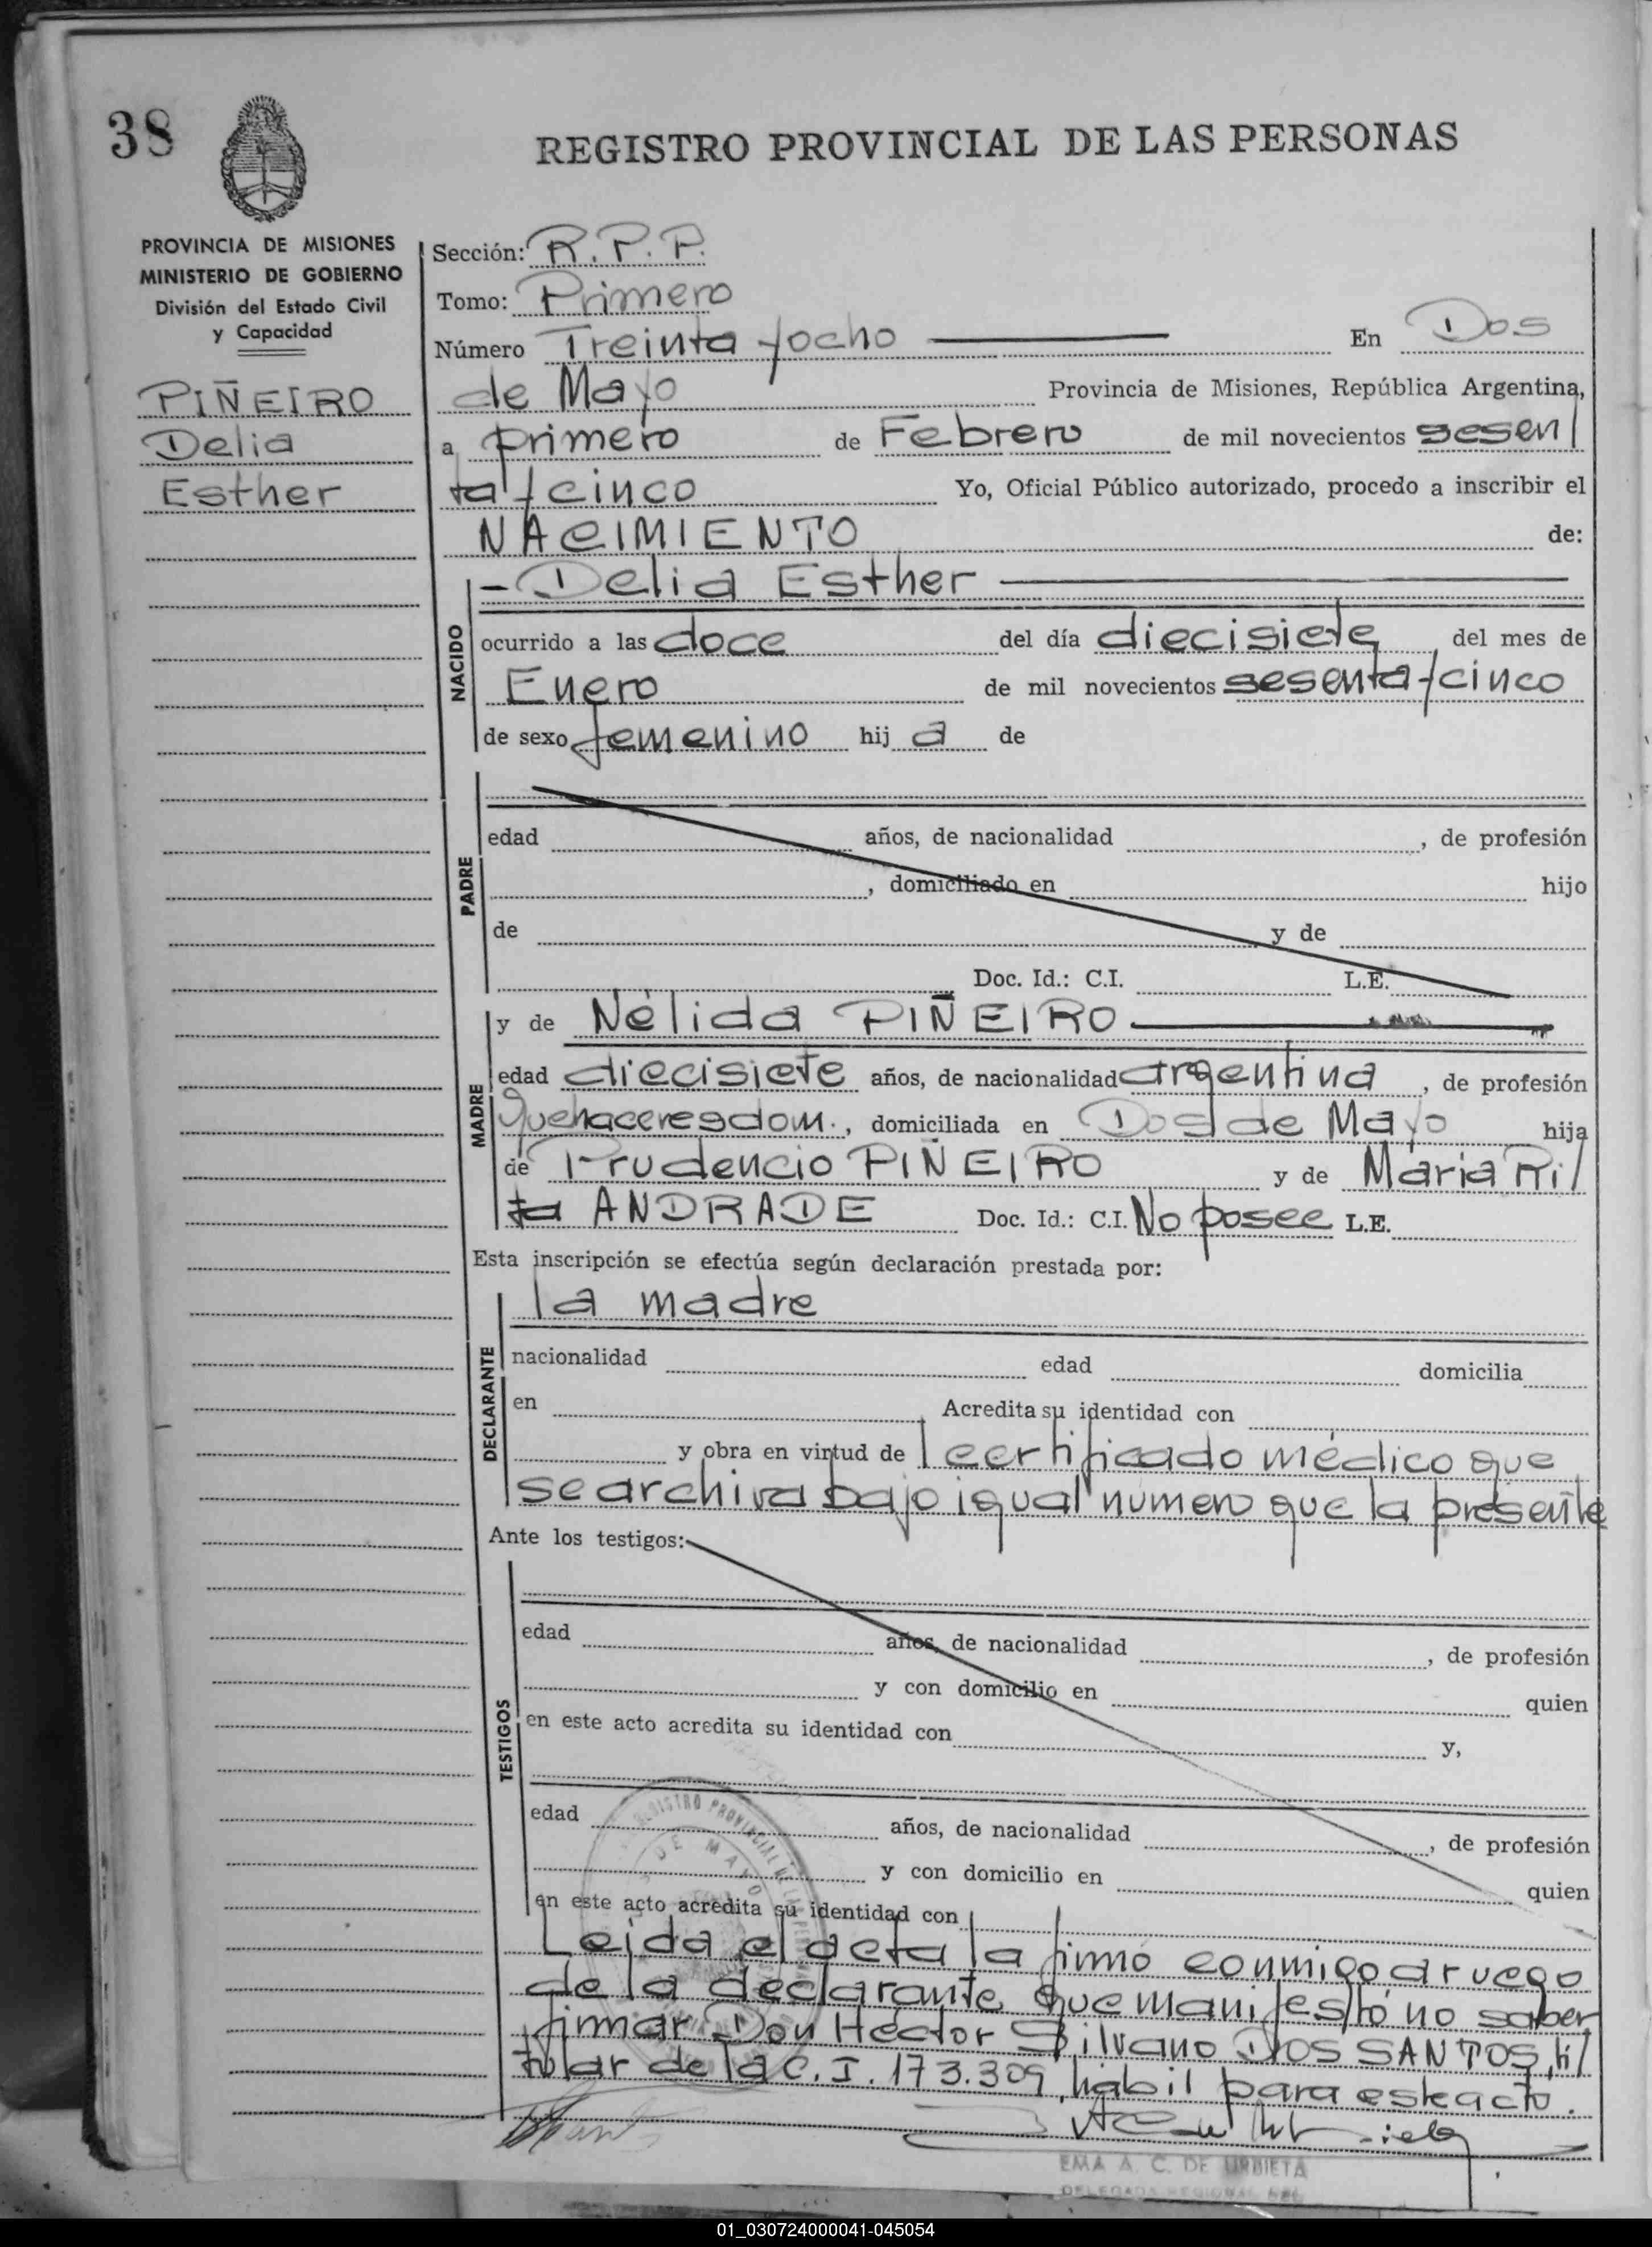 38
REGISTRO PROVINCIAL DE LAS PERSONAS
PROVINCIA DE MISIONES
MINISTERIO DE GOBIERNO
División del Estado Civil
y Capacidad
PIÑEIRO
Delia
Esther
Sección: R.P.P.
Tomo: Primero
Número Treinta y ocho En Dos
de Mayo Provincia de Misiones, República Argentina,
a primero de Febrero de mil novecientos sesen/
ta y cinco Yo, Oficial Público autorizado, procedo a inscribir el
NACIMIENTO de:
NACIDO
- Delia Esther
ocurrido a las doce del día diecisiete del mes de
Enero de mil novecientos sesenta y cinco
de sexo femenino hij a de
PADRE
edad años, de nacionalidad , de profesión
, domiciliado en hijo
de y de
Doc. Id.: C.I. L.E.
MADRE
y de Nélida PIÑEIRO
edad diecisiete años, de nacionalidad argentina , de profesión
Quehaceres dom. , domiciliada en Dos de Mayo hija
de Prudencio PIÑEIRO y de María Ri/
ta ANDRADE Doc. Id.: C.I. No posee L.E.
Esta inscripción se efectúa según declaración prestada por:
DECLARANTE
la madre
nacionalidad edad domicilia
en Acredita su identidad con
y obra en virtud de certificado médico que
se archiva bajo igual numero que la presente
Ante los testigos:
TESTIGOS
edad años, de nacionalidad , de profesión
y con domicilio en quien
en este acto acredita su identidad con y,
edad años, de nacionalidad , de profesión
y con domicilio en quien
en este acto acredita su identidad con
Leida el acta la firmó conmigo a ruego
de la declarante que manifestó no saber
firmar Don Héctor Silvano DOS SANTOS, ti/
tular de la C.I. 173.309, hábil para este acto.
REGISTRO PROVINCIAL DE LAS
DE MAYO
EMA A. C. DE URBIETA
DELEGADA REGIONAL
01_030724000041-045054